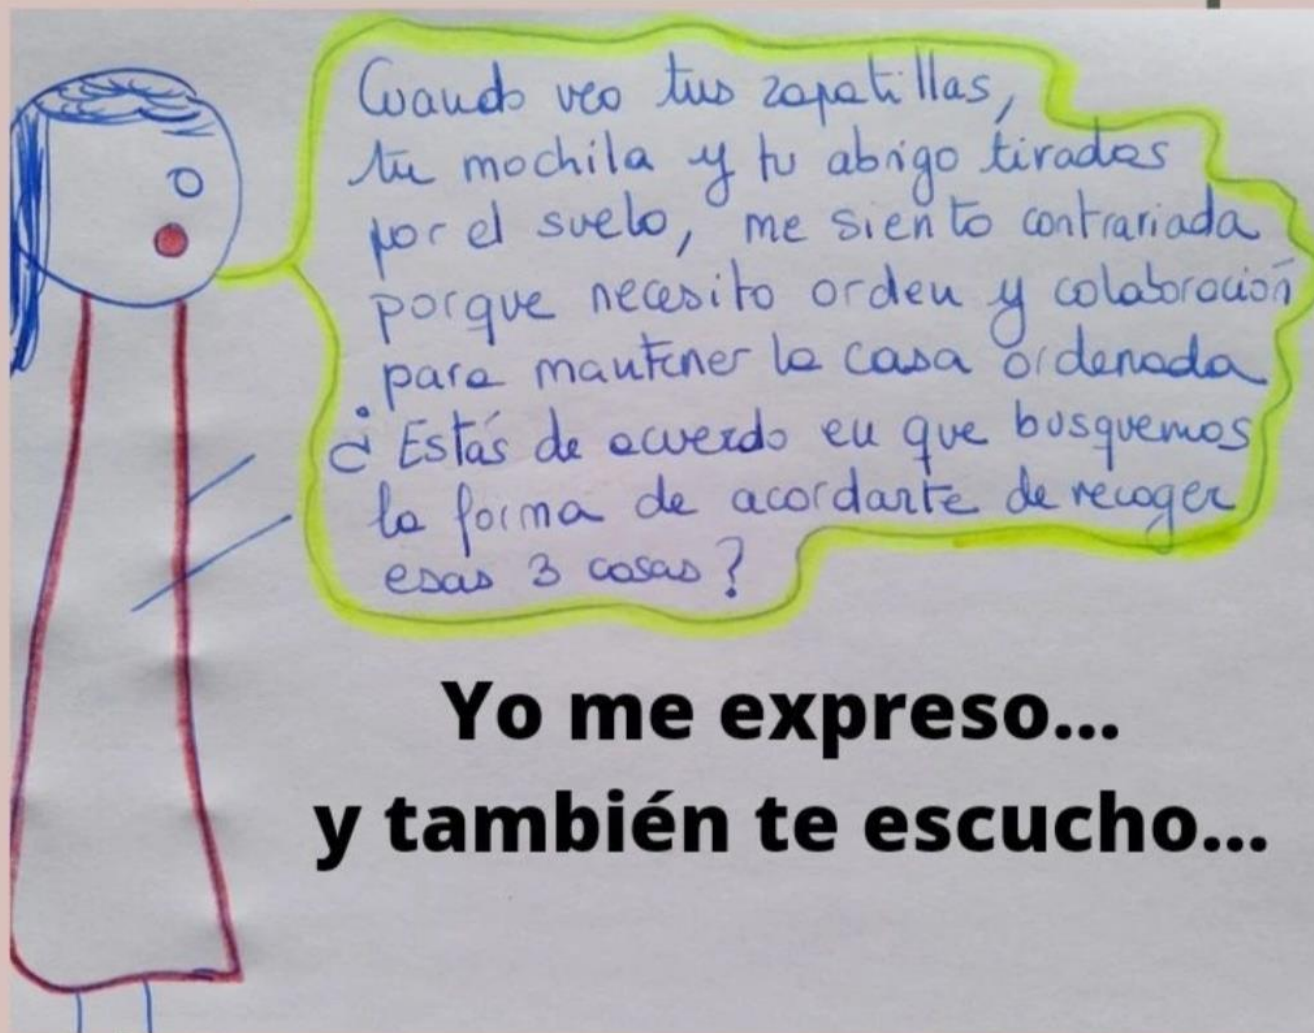 Cuando veo tus zapatillas,
tu mochila y tu abrigo tirados
por el suelo, me siento contrariada
porque necesito orden y colaboración
para mantener la casa ordenada
¿Estás de acuerdo en que busquemos
la forma de acordarte de recoger
esas 3 cosas?
Yo me expreso...
y también te escucho...